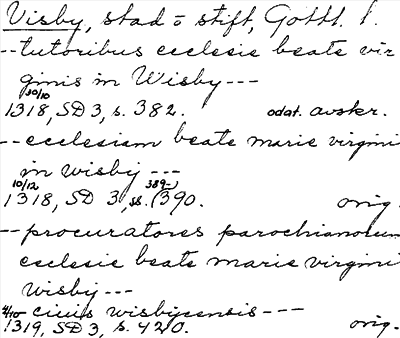 Visby, stad o stift, Gottl. l.
--tutoribus ecclesie beate vir
ginis in Wisby---
30/10
1318, SD 3, s. 382. odat. avskr.
--ecclesiam beate marie virgini
in wisby ---
10/12 389-)
1318, SD 3, ss. (390. orig.
--procuratores parochianorum
ecclesie beate marie virgini
wisby---
4/10 ciuis wisbycensis---
1319, SD 3, s. 420. orig.